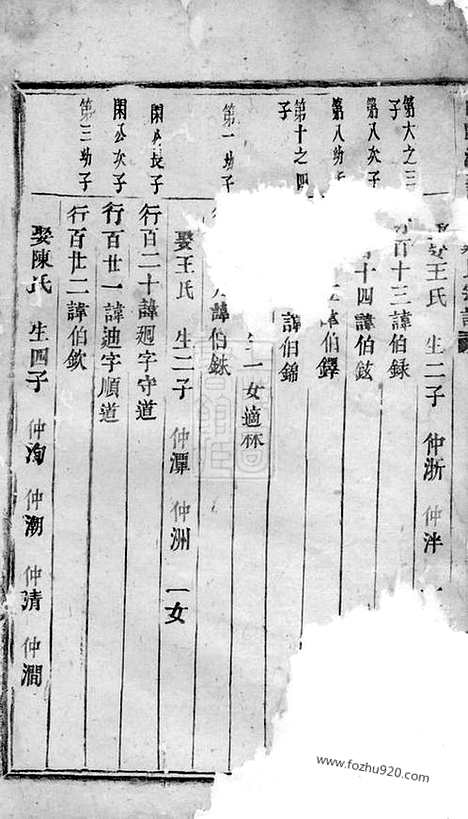 娶王氏 生二子 仲浙 仲泮
第六之三子
百十三諱伯銾
第八次子
十四諱伯鉉
第八幼子
諱伯鐸
第十之四子
諱伯錦
一女適林
第一幼子
諱伯銖
娶王氏 生二子 仲潭 仲洲 一女
閑公長子
行百二十諱迥字守道
閑公次子
行百廿一諱迪字順道
第三幼子
行百廿二諱伯欽
娶陳氏 生四子 仲洵 仲潮 仲清 仲澗
www.fozhu920.com